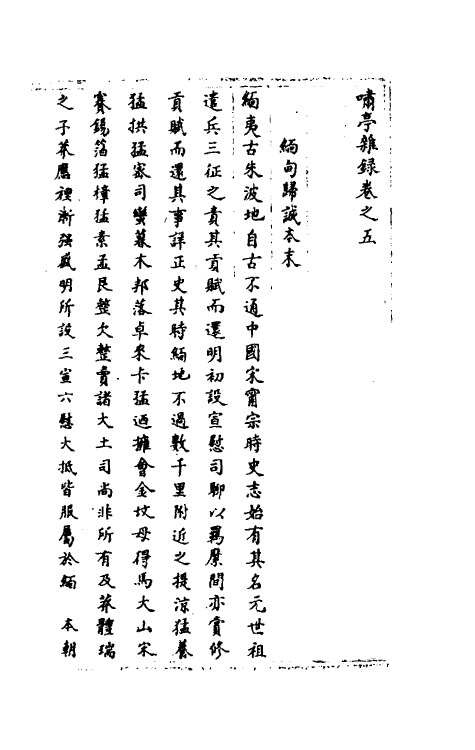 嘯亭雜録卷之五
緬甸歸誠本末
緬夷古朱波地自古不通中國宋甯宗時史志始有其名元世祖
遣兵三征之責其貢賦而還明初設宣慰司聊以羈縻間亦賞修
貢賦而還其事詳正史其時緬地不過數千里附近之提涼猛養
猛拱猛密司蠻暮木邦落卓來卡猛迺擁會金坟母得馬大山宋
賽錫箔猛樟猛素孟艮整欠整賣諸大土司尚非所有及莽體瑞
之子莽應裡漸强盛明所設三宣六慰大抵皆服屬於緬　本朝